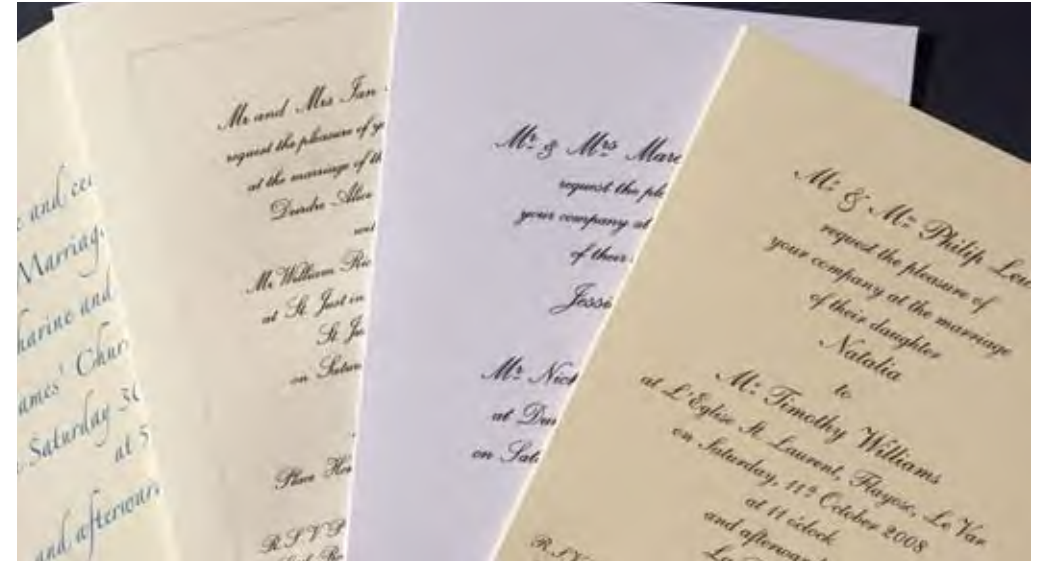 and
Marriag
harine and
ames' Chur
Saturday 30
at 5
and afterwar
Mr and Mrs Ian
request the pleasure of y
at the marriage of th
Deirdre Alice
Mr William Ric
at St. Just in
St Ju
on Satur
Place Ho
R.S.V.P
Mr & Mrs Marc
request the ple
your company at
of their
Jessi
Mr Nich
at Du
on Satu
Mr & Mrs Philip Lew
request the pleasure of
your company at the marriage
of their daughter
Natalia
to
Mr Timothy Williams
at L'Eglise St Laurent, Flayosc, Le Var
on Saturday, 11th October 2008
at 11 o'clock
and afterwar
La
R.S.V